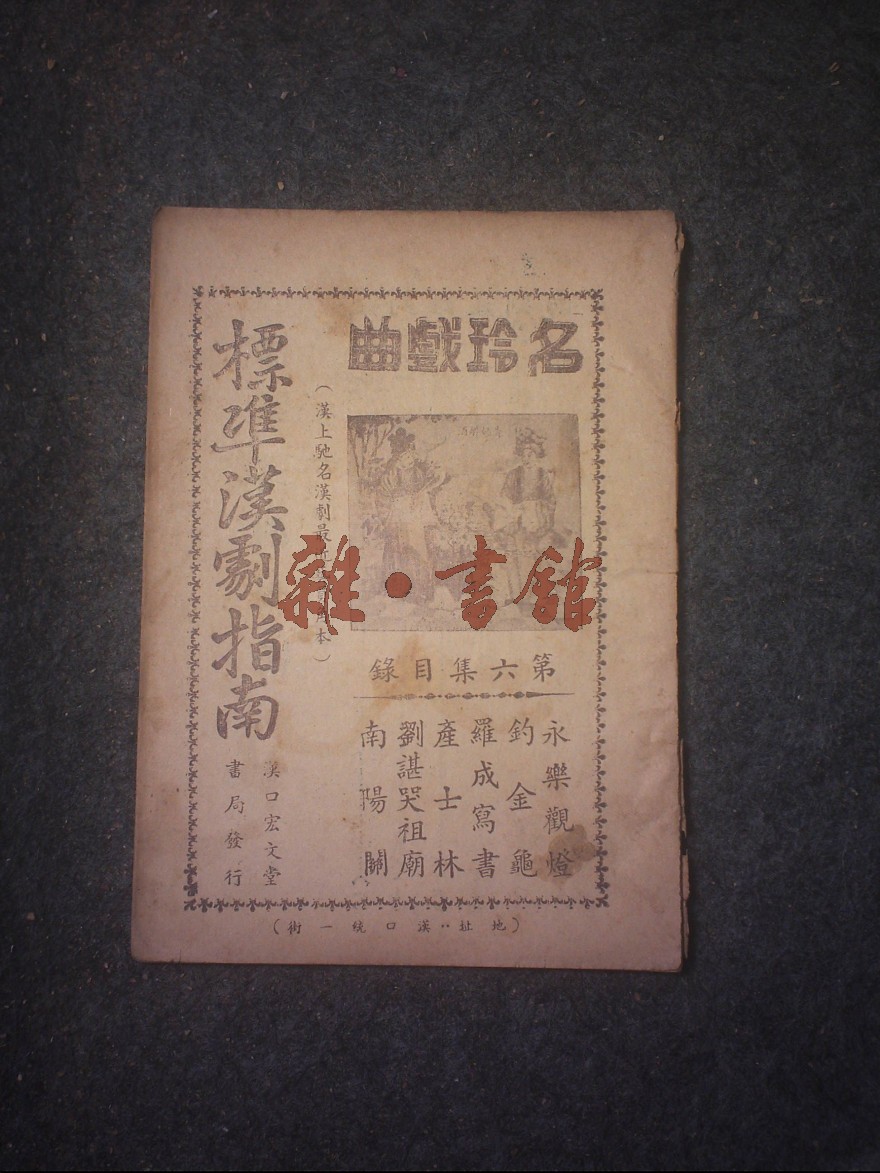 名玲戲曲
第六集目錄
永樂觀燈
釣金龜
羅成寫書
產士林
劉諶哭祖廟
南陽關
(漢上馳名漢劇最近本)
標準漢劇指南
漢口宏文堂
書局發行
(地址:漢口統一街)
雜·書館